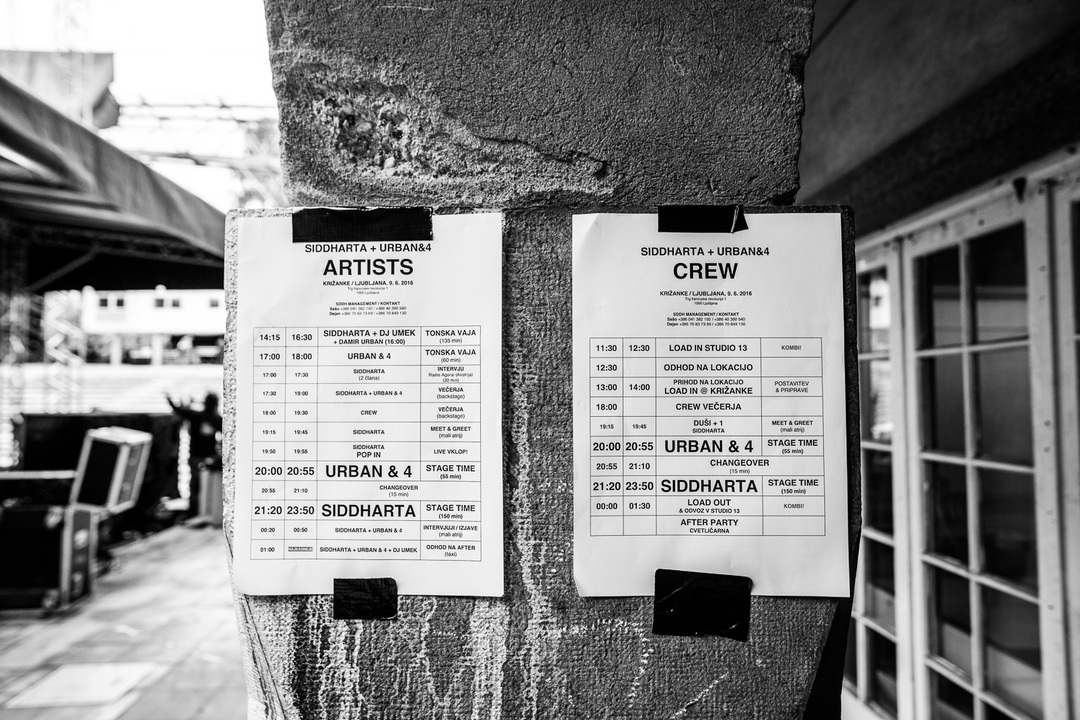 SIDDHARTA + URBAN&4
ARTISTS
KRIŽANKE / LJUBLJANA, 9. 6. 2016
Trg francoske revolucije 1
1000 Ljubljana
SDDH MANAGEMENT / KONTAKT
14:15 16:30 SIDDHARTA + DJ UMEK TONSKA VAJA
+ DAMIR URBAN (16:00) (135 min)
17:00 18:00 URBAN & 4 TONSKA VAJA
(60 min)
17:00 17:30 SIDDHARTA INTERVJU
(2 člana) Radio Agora! (Avstrija)
(30 min)
17:30 19:00 SIDDHARTA + URBAN & 4 VEČERJA
(backstage)
18:00 19:30 CREW VEČERJA
(backstage)
19:15 19:45 SIDDHARTA MEET & GREET
(mali atrij)
19:50 19:55 SIDDHARTA LIVE VKLOP!
POP IN
20:00 20:55 URBAN & 4 STAGE TIME
(55 min)
20:55 21:10 CHANGEOVER
(15 min)
21:20 23:50 SIDDHARTA STAGE TIME
(150 min)
00:20 00:50 SIDDHARTA + URBAN & 4 INTERVJUJI / IZJAVE
(mali atrij)
01:00 SIDDHARTA + URBAN & 4 + DJ UMEK ODHOD NA AFTER
(taxi)
SIDDHARTA + URBAN&4
CREW
KRIŽANKE / LJUBLJANA, 9. 6. 2016
Trg francoske revolucije 1
1000 Ljubljana
SDDH MANAGEMENT / KONTAKT
11:30 12:30 LOAD IN STUDIO 13 KOMBI!
12:30 ODHOD NA LOKACIJO
13:00 14:00 PRIHOD NA LOKACIJO POSTAVITEV
LOAD IN @ KRIŽANKE & PRIPRAVE
18:00 CREW VEČERJA
19:15 19:45 DUŠI + 1 MEET & GREET
SIDDHARTA (mali atrij)
20:00 20:55 URBAN & 4 STAGE TIME
(55 min)
20:55 21:10 CHANGEOVER
(15 min)
21:20 23:50 SIDDHARTA STAGE TIME
(150 min)
00:00 01:30 LOAD OUT KOMBI!
& ODVOZ V STUDIO 13
AFTER PARTY
CVETLIČARNA